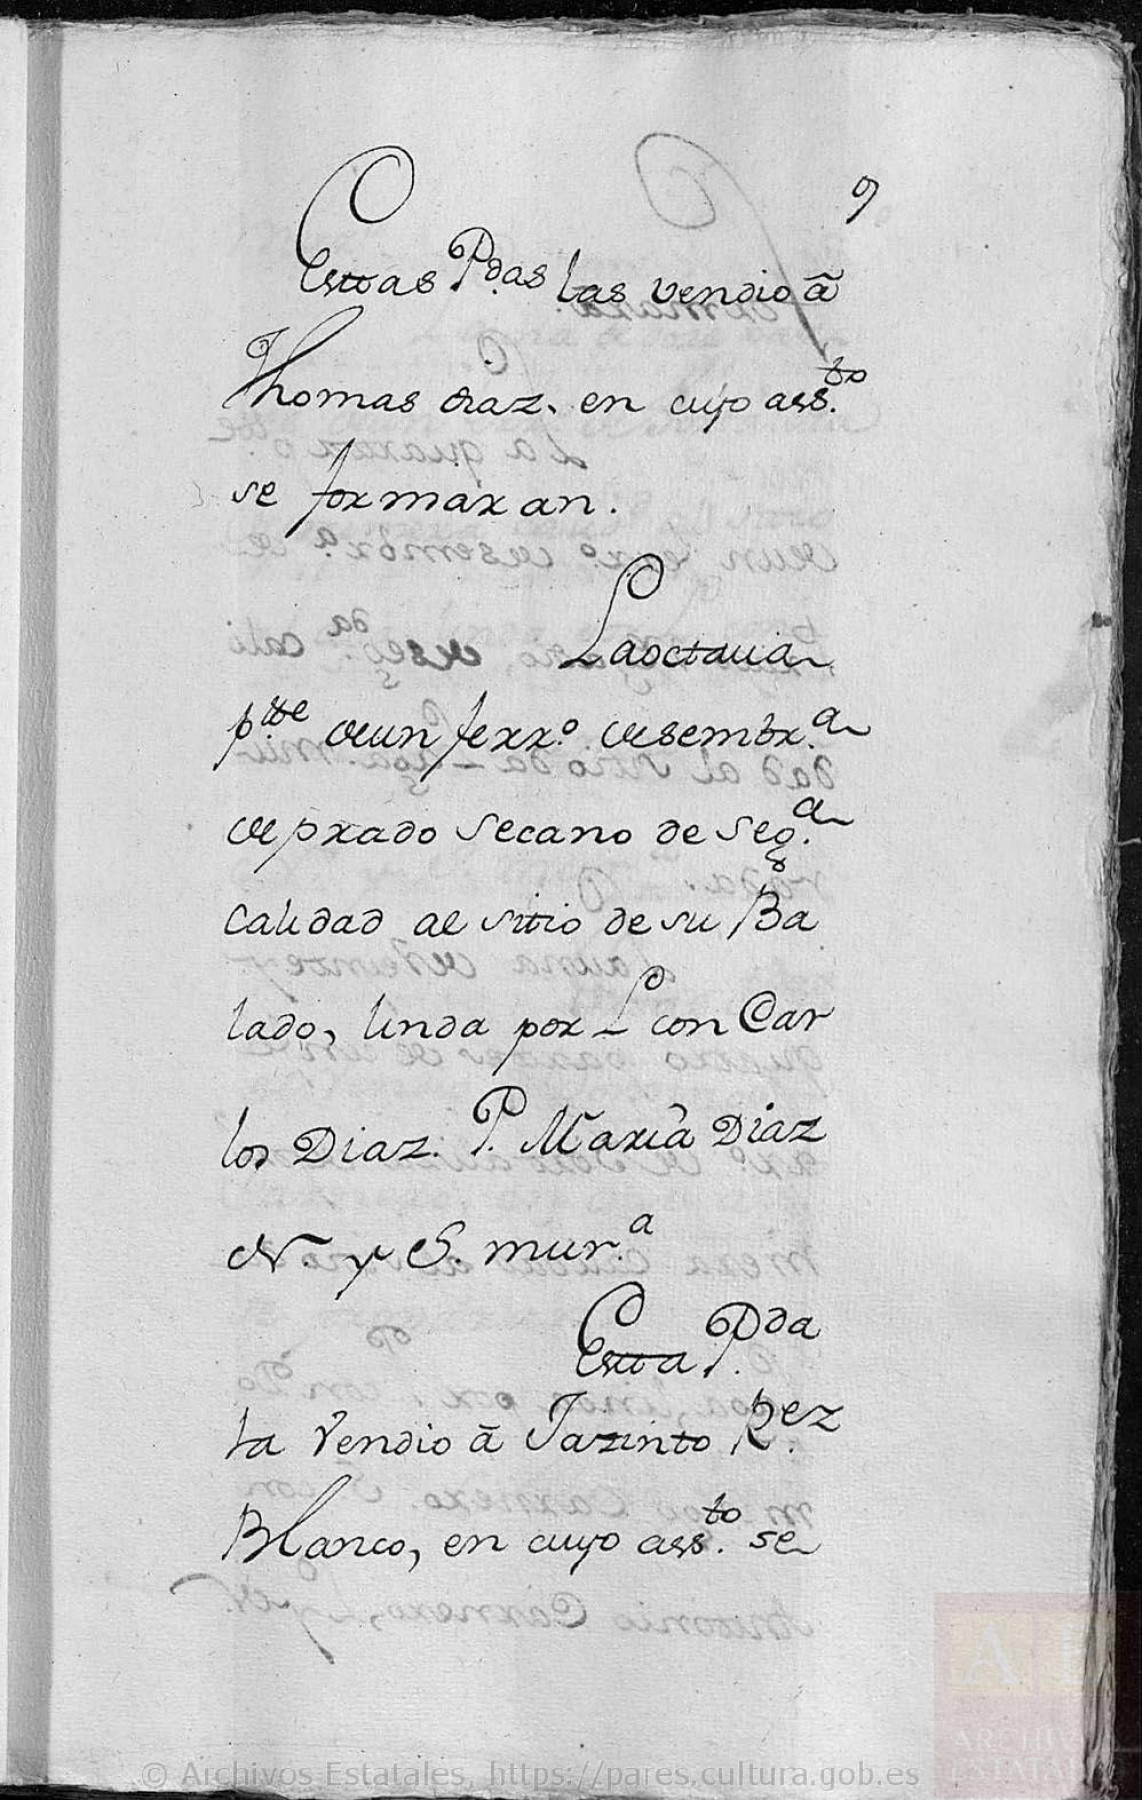 9
Estas P.das las vendio â
Thomas diaz. en cuyo ass.to
se formaran.
La octaua
p.te de un ferr.o de sembr.a
de prado secano de seg.a
calidad al sitio de su Ba
lado, linda por L con Car
los Diaz. P. Maria Diaz
N. y S. mur.a
Esta P.da
la vendio â Jazinto R.ez
Blanco, en cuyo ass.to se
© Archivos Estatales, https://pares.cultura.gob.es